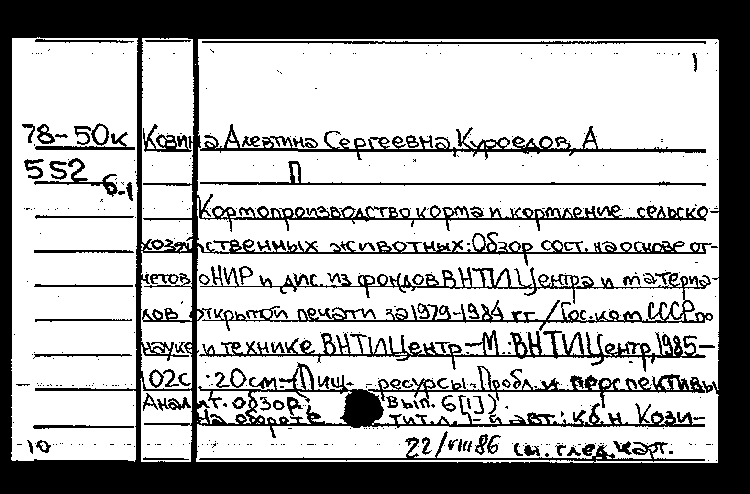 1
78-50к Козина, Алевтина Сергеевна, Куроедов, А
552 -6-1 П
Кормопроизводство, корма и кормление сельско-
хозяйственных животных: Обзор сост. на основе от-
четов о НИР и дис. из фондов ВНТИЦентра и материа-
лов открытой печати за 1979-1984 гг. / Гос. ком. СССР по
науке и технике, ВНТИЦентр.-М.: ВНТИЦентр, 1985-
102с.; 20см-(Пищ. ресурсы. Пробл. и перспективы
Аналит. обзор; Вып. 6[1])
На обороте тит. л. 1-й авт.: к.б.н. Кози-
10 22/VIII 86 см. след. карт.